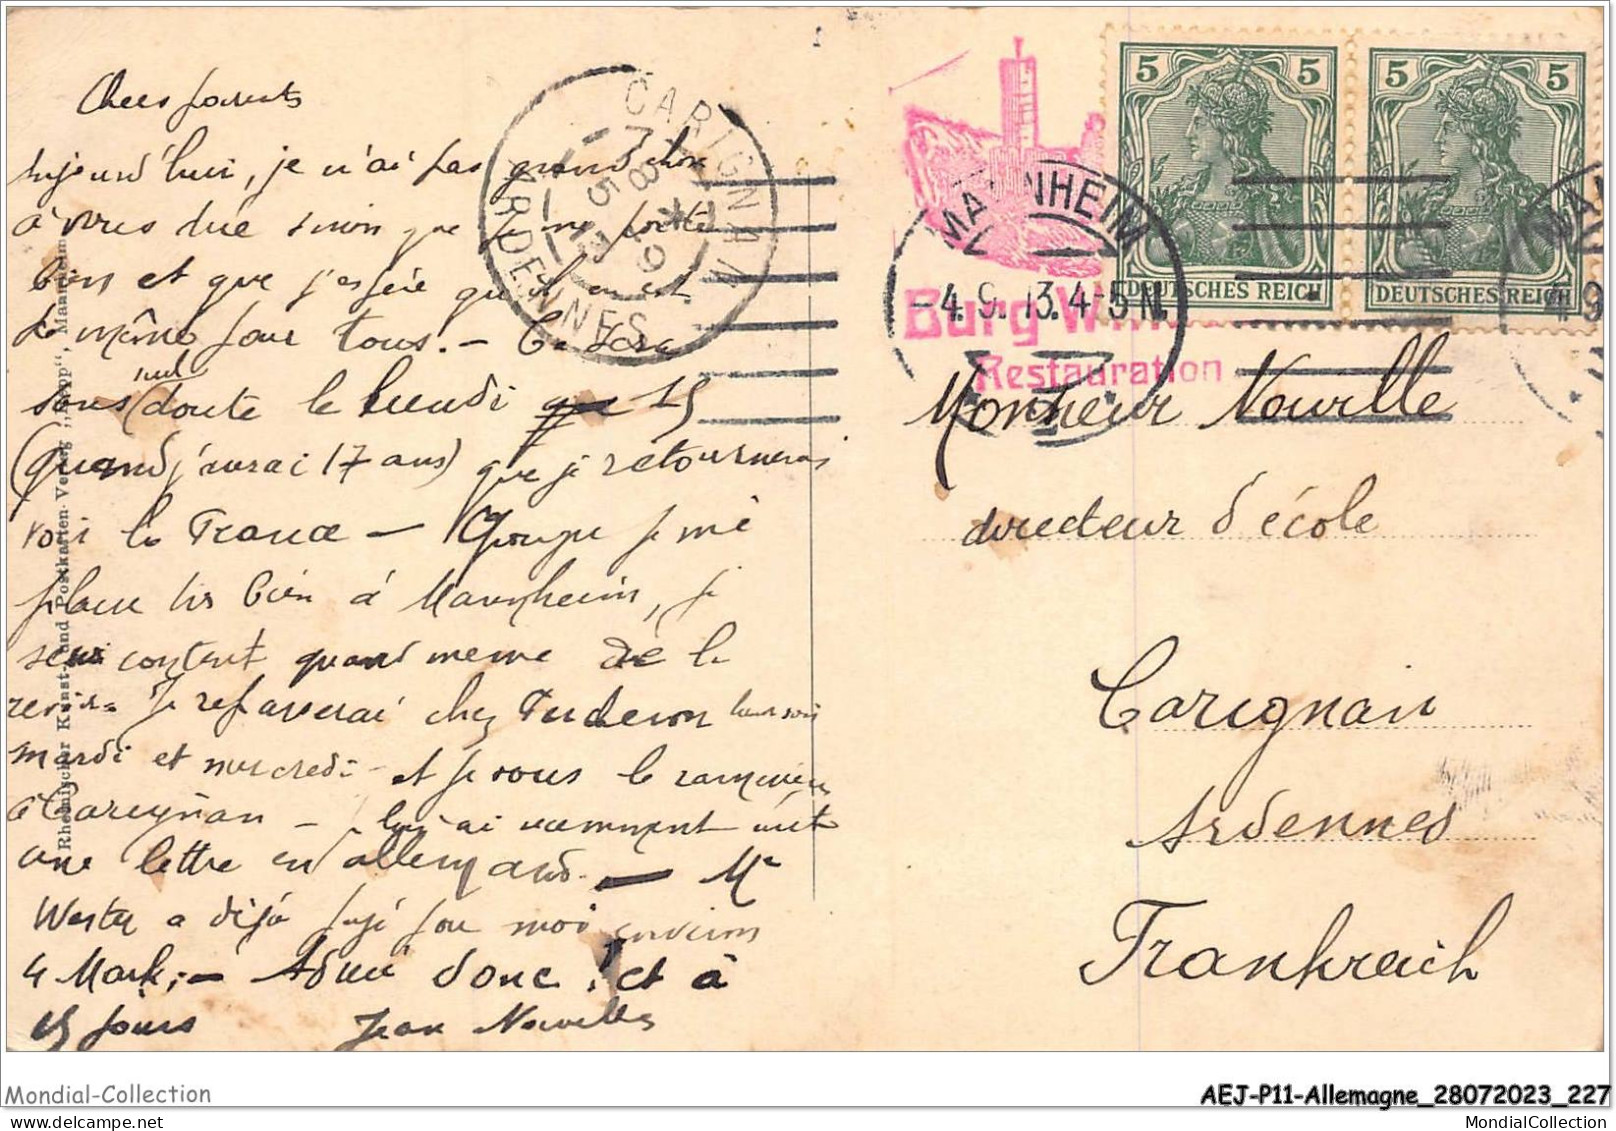 Chers parents
aujourd'hui, je n'ai pas grand chose
à vous dire sinon que je me porte
bien et que j'espère qu'il en est
de même pour tous. - Ce sera
sans doute le lundi 15
(quand j'aurai 17 ans) que je retournerai
voir la France - Quoique je me
plaise très bien à Mannheim, je
suis content quand meme de la
revoir. Je repasserai chez
mardi et mercredi - et je vous le
à Carignan -
une lettre en allemand. - Mr
a déjà payé pour moi environ
4 Mark; - Adieu donc! et à
15 jours Jean Nouvelle
Rheinischer Kunst- und Postkarten-Verlag „Knapp“, Mannheim
CARIGNAN
ARDENNES
5 5
DEUTSCHES REICH
5 5
DEUTSCHES REICH
MANNHEIM
-4.9.13.4-5N.
Burg
Restauration
Monsieur Nouvelle
directeur d'école
Carignan
Ardennes
Frankreich
Mondial-Collection
AEJ-P11-Allemagne_28072023_227
MondialCollection.com